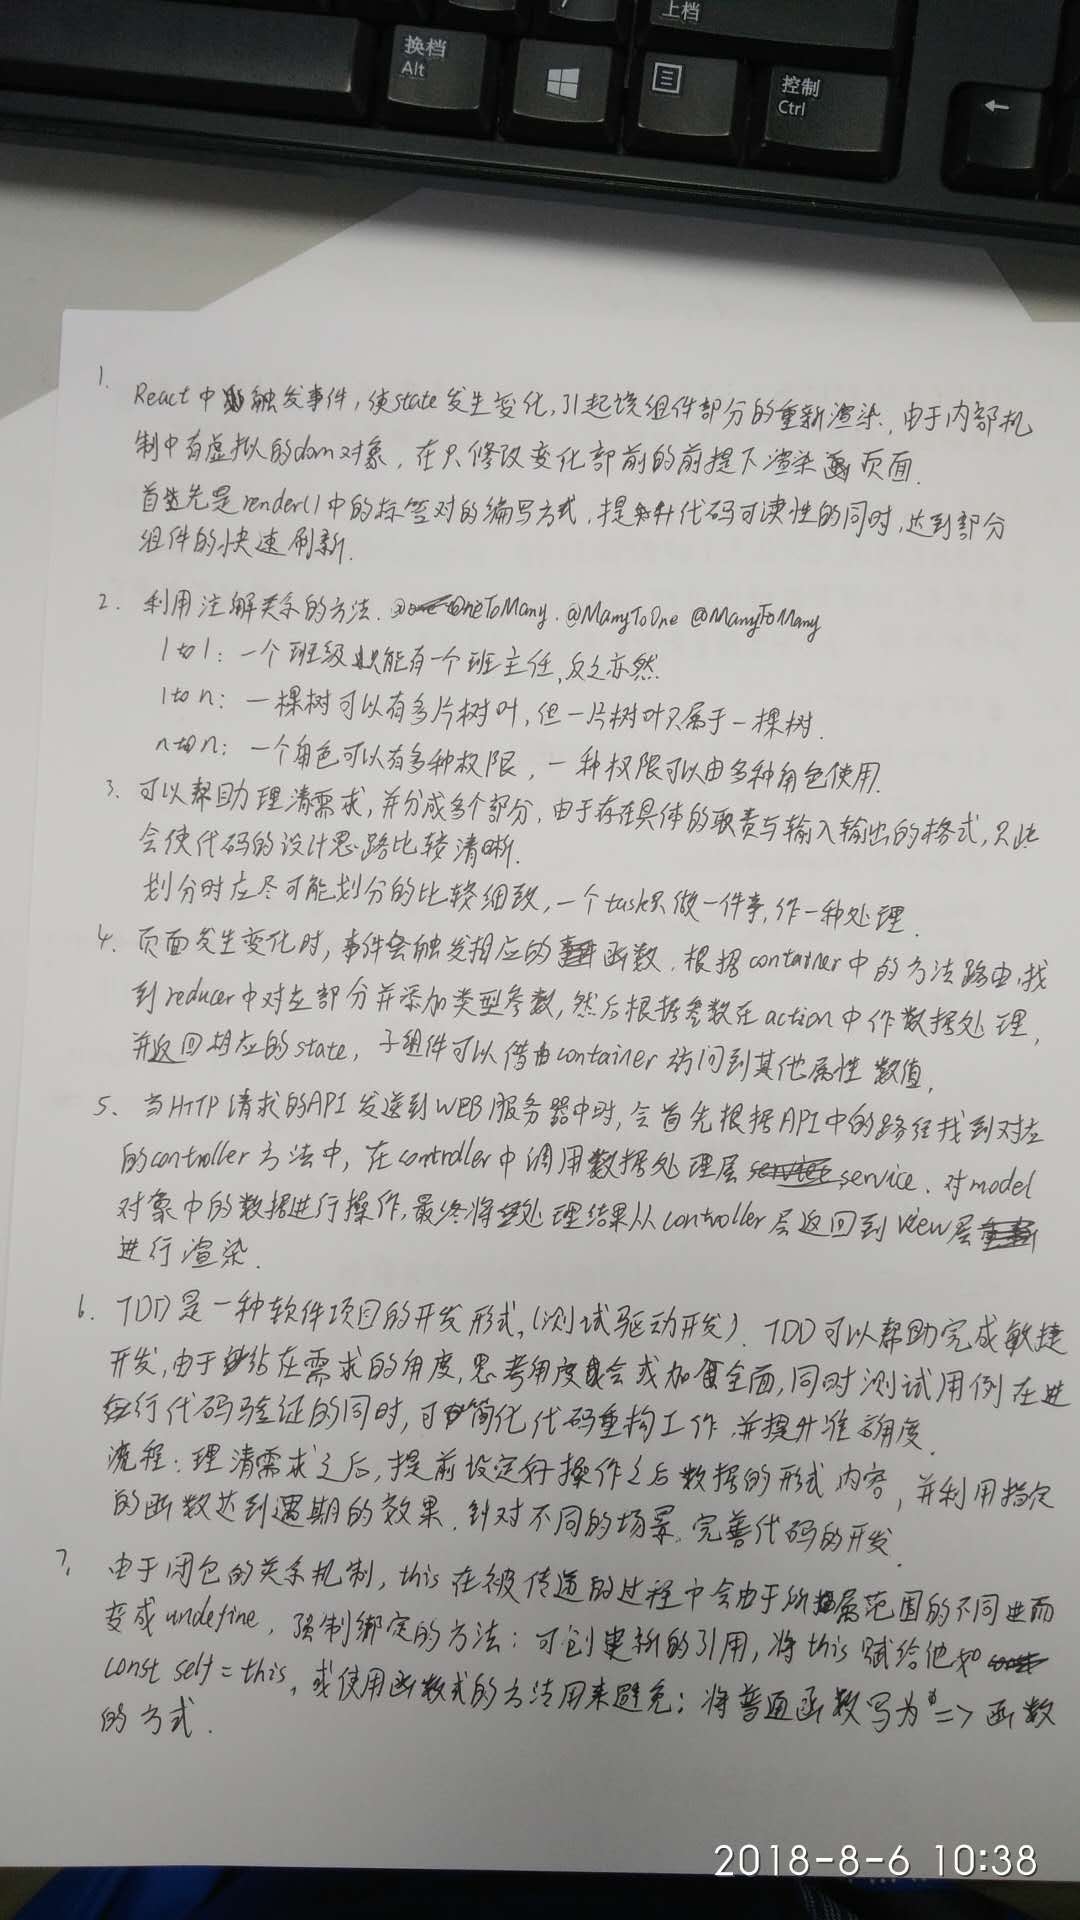 上档
换档
Alt
控制
Ctrl
1.
React中触发事件,使state发生变化,引起该组件部分的重新渲染.,由于内部机
制中有虚拟的dom对象,在只修改变化部前的前提下渲染页面.
首先是render()中的标签对的编写方式,提升代码可读性的同时,达到部分
组件的快速刷新.
2. 利用注解关系的方法. @OneToMany. @ManyToOne @ManyToMany
1 to 1: 一个班级只能有一个班主任,反之亦然.
1 to n: 一棵树可以有多片树叶,但一片树叶只属于一棵树.
n to n: 一个角色可以有多种权限,一种权限可以由多种角色使用.
3. 可以帮助理清需求,并分成多个部分,由于存在具体的职责与输入输出的格式,只此
会使代码的设计思路比较清晰.
划分时应尽可能划分的比较细致,一个task只做一件事,作一种处理.
4. 页面发生变化时,事件会触发相应的函数.根据container中的方法路由,找
到reducer中对应部分并添加类型参数,然后根据参数在action中作数据处理,
并返回相应的state, 子组件可以借由container访问到其他属性数值.
5、当HTTP请求的API发送到WEB服务器中时,会首先根据API中的路径找到对应
的controller方法中,在controller中调用数据处理层service、对model
对象中的数据进行操作,最终将处理结果从controller层返回到view层
进行渲染.
6. TDD是一种软件项目的开发形式,(测试驱动开发). TDD可以帮助完成敏捷
开发,由于站在需求的角度,思考角度会更加全面,同时测试用例在进
行代码验证的同时,可简化代码重构工作.并提升准确度.
流程:理清需求之后,提前设定好操作之后数据的形式内容,并利用指定
的函数达到遇期的效果.针对不同的场景.完善代码的开发.
7. 由于闭包的关系机制,this在被传递的过程中会由于所属范围的不同进而
变成undefine,强制绑定的方法:可创建新的引用,将this赋给他如
const self=this,或使用函数式的方法用来避免;将普通函数写为=>函数
的方式.
2018-8-6 10:38